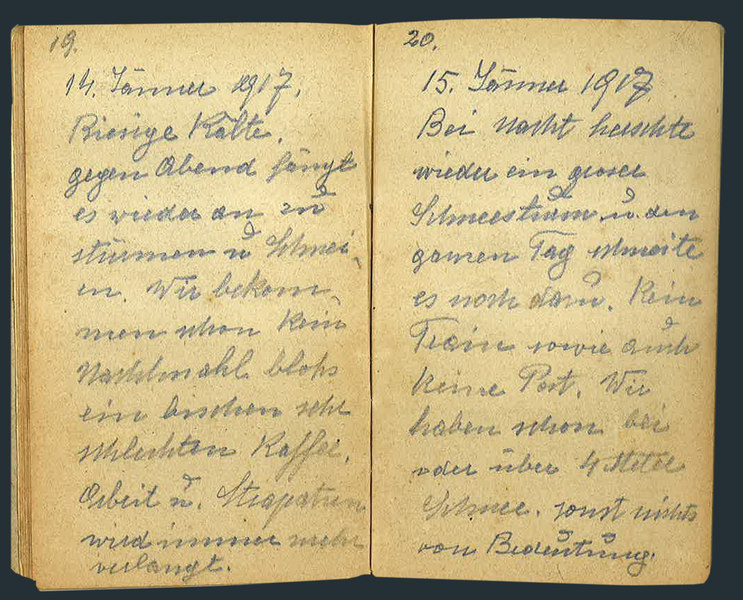 19.
14. Jänner 1917.
Riesige Kälte,
gegen Abend fängt
es wieder an zu
stürmen u. Schnei-
en. Wir bekom-
men schon kein
Nachtmahl blohs
ein bischen sehr
schlechten Kaffee.
Arbeit u. Strapatzen
wird immer mehr
verlangt.
20.
15. Jänner 1917
Bei Nacht herschte
wieder ein groser
Schneesturm u. den
ganzen Tag schneite
es noch dazu. Kein
Train sowie auch
keine Post. Wir
haben schon bei
oder über 4 Meter
Schnee. sonst nichts
von Bedeutung.